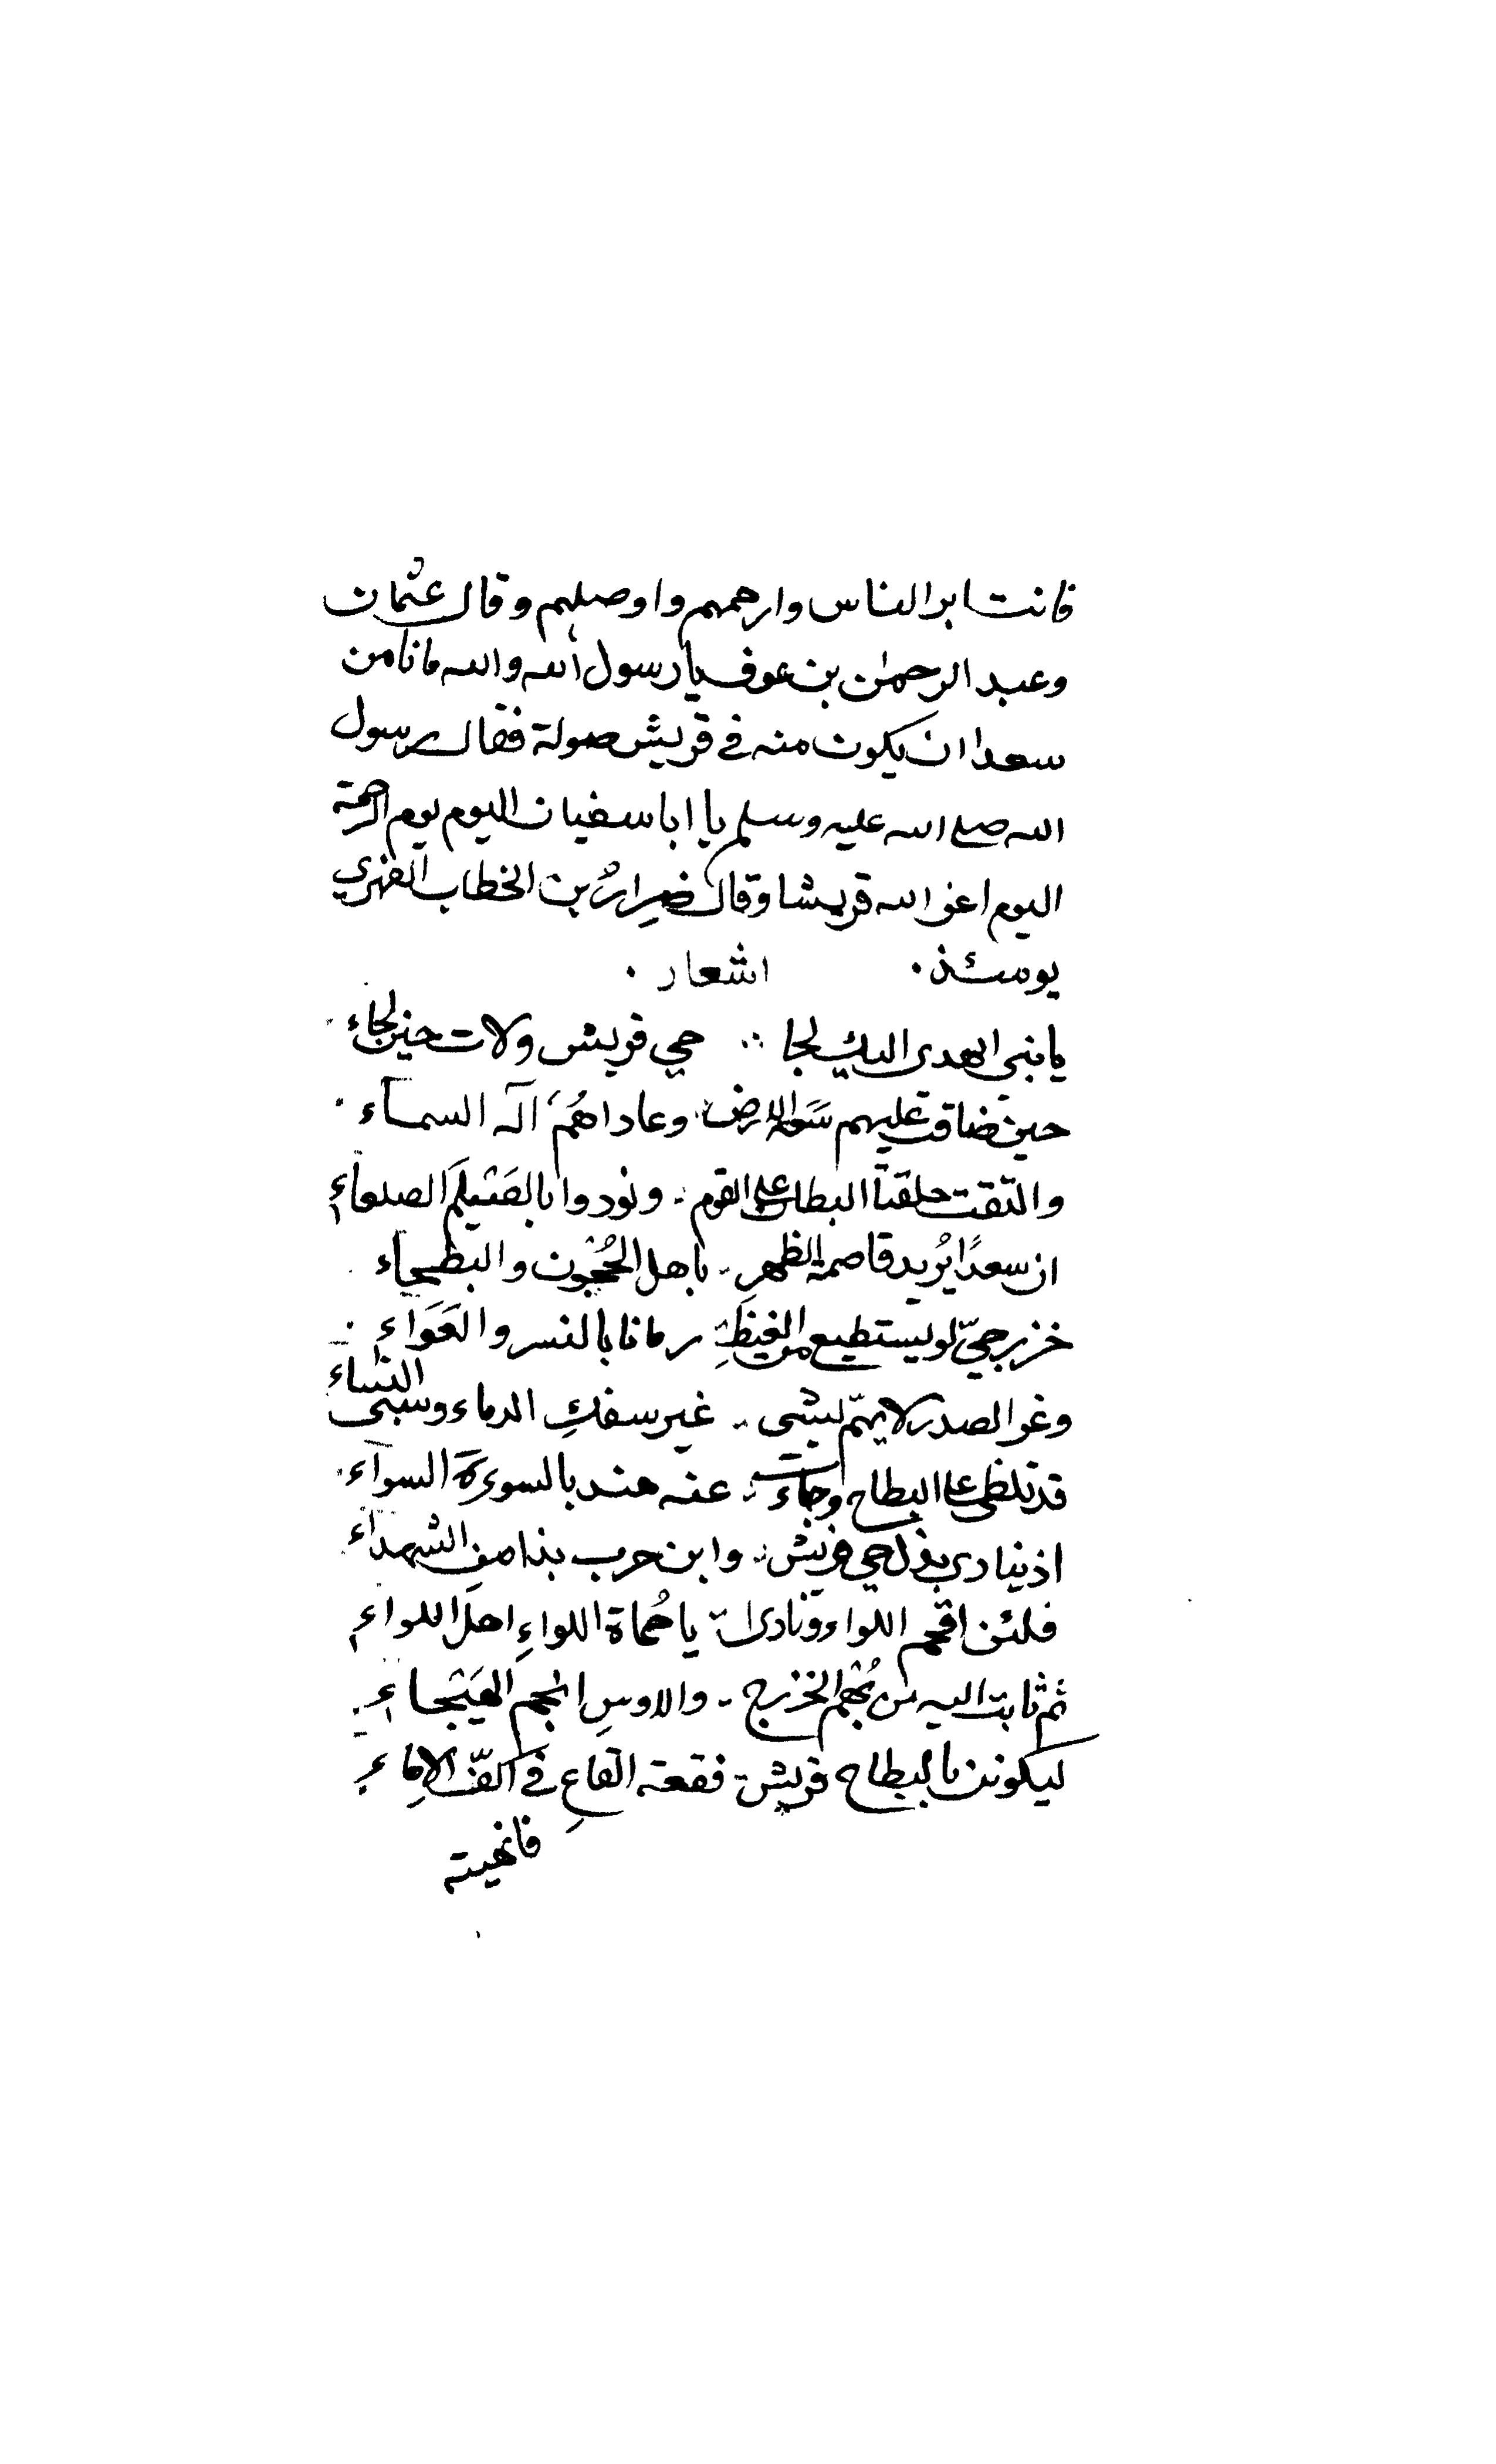 فانت ابر الناس وارحمهم واوصلهم وقال عثمان
وعبد الرحمن بن عوف يا رسول الله والله ما نامن
سعدا ان يكون منه في قريش صولة فقال رسول
الله صلى الله عليه وسلم يا ابا سفيان اليوم يوم الرحمة
اليوم اعز الله قريشا وقال ضِرارُ بن الخطاب الفهري
يومئذ . اشعار .
يا نبي الهدى اليك لجا ∴ حي قريش ولات حين لجاء
حين ضاقت عليهم سَعة الارض وعاداهُم اله السماء
والتقت حلقتا البطان على القوم ونودوا بالصَيلَم الصلعاءِ
ان سعدًا يُريد قاصمة الظهرِ باهل الحُجُون والبطحاء
خزرجيّ لو يستطيع من الغيظِ رمانا بالنسر والعَوَاءِ
وغر الصدر لا يهمّ بشى غير سفكِ الدماء وسبى النساء
قد تلظى على البطاح وجاءت عنه هند بالسوءة السواء
اذ ينادى بذل حي قريش وابن حرب بذا من الشهداء
فلئن اقحم اللواء ونادى يا حُماة اللواءِ اهلَ اللواءِ
ثم ثابت اليه من بُهَم الخزرج والاوسِ انجم الهَيْجاءِ
ليكونن بالبطاح قريش فقعة القاعِ في اكفّ الاِماءِ
فانهينه